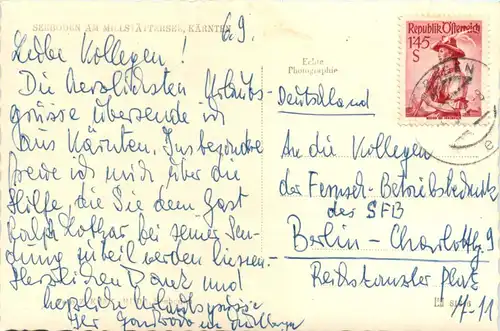 SEEBODEN AM MILLSTÄTTERSEE, KÄRNTEN
6.9.
Liebe Kollegen!
Die herzlichsten Urlaubs-
grüsse übersende ich
aus Kärnten. Insbesondere
freue ich mich über die
Hilfe, die Sie dem Gast
Lothar bei seiner Sen-
dung zuteil werden liessen.
Herzlichen Dank und
herzliche Urlaubsgrüsse
Ihr
Echte
Photographie
Republik Österreich
1.45
S
Deutschland
An die Kollegen
der Fernseh-Betriebstechnik
des SFB
Berlin-Charlottbg. 9
Reichskanzler Platz